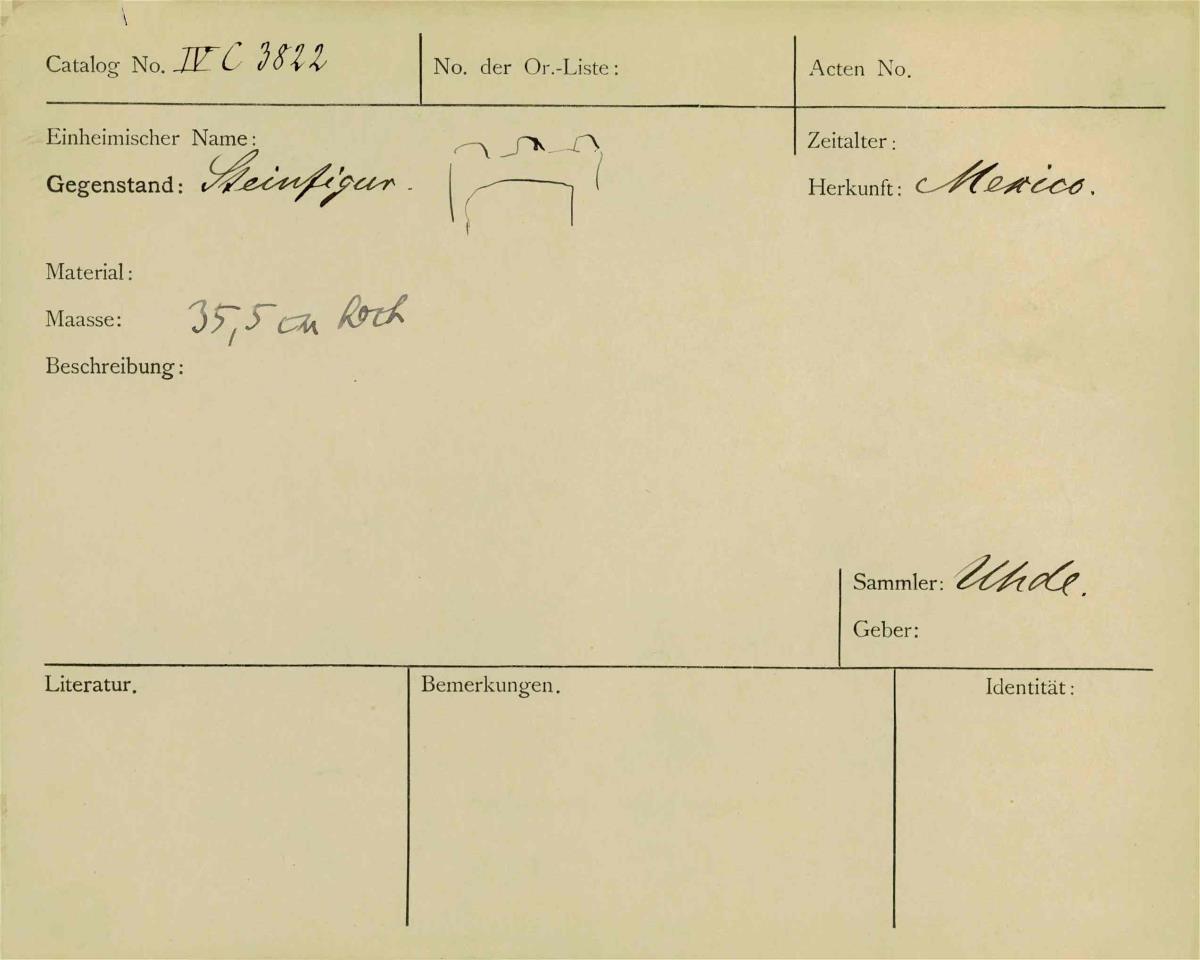 Catalog No. IV C 3822
No. der Or.-Liste:
Acten No.
Einheimischer Name:
Zeitalter:
Gegenstand: Steinfigur.
Herkunft: Mexico.
Material:
Maasse: 35,5 cm hoch
Beschreibung:
Sammler: Uhde.
Geber:
Literatur.
Bemerkungen.
Identität: